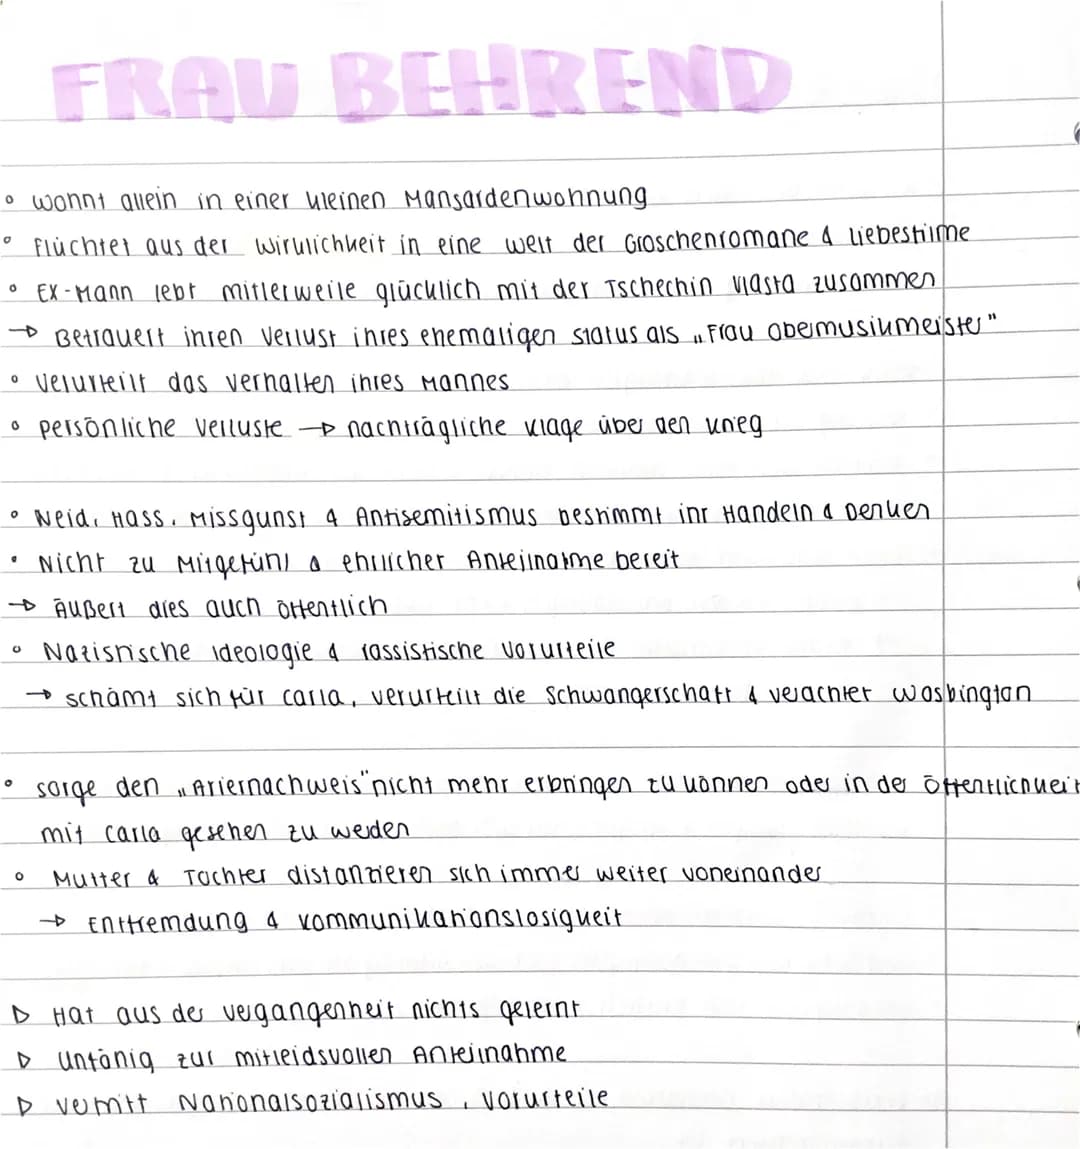 FRAU BEHREND
° wohnt allein in einer kleinen Mansardenwohnung
° flüchtet aus der Wirklichkeit in eine Welt der Groschenromane & Liebesfilme
° Ex-Mann lebt mitlerweile glücklich mit der Tschechin Vlasta zusammen
→ Betrauert ihren Verlust ihres ehemaligen Status als „Frau Obermusikmeister"
° verurteilt das Verhalten ihres Mannes
° persönliche Verluste → nachträgliche Klage über den Krieg
° Neid, Hass, Missgunst & Antisemitismus bestimmt ihr Handeln & Denken
• Nicht zu Mitgefühl & ehrlicher Anteilnahme bereit
→ Äußert dies auch öffentlich
° Nazisische Ideologie & rassistische Vorurteile
→ schämt sich für Carla, verurteilt die Schwangerschaft & verachtet Washington
° sorge den „Ariernachweis" nicht mehr erbringen zu können oder in der Öffentlichkeit
mit Carla gesehen zu werden
° Mutter & Tochter distanzieren sich immer weiter voneinander
→ Entfremdung & Kommunikationslosigkeit
▷ Hat aus der Vergangenheit nichts gelernt
▷ unfähig zur mitleidsvollen Anteilnahme
▷ Nationalsozialismus, Vorurteile